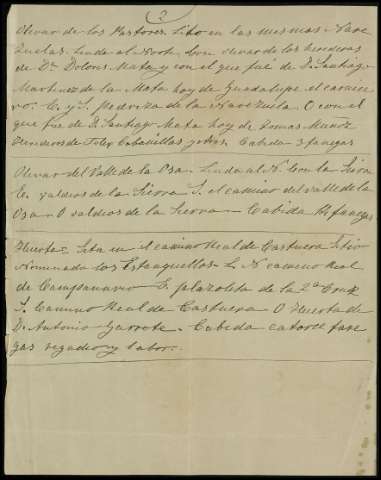 2
Olivar de los Pastores. Sito en las mismas Nave
zuelas. Linda al Norte con olivar de los herederos
de Dª Dolores Mata y con el que fué de D. Santiago
Martinez de la Mata hoy de Guadalupe el carnice
ro. E. y S. pedriza de la Navezuela. O con el
que fue de D. Santiago Mata hoy de Tomas Muñoz
Herederos de Felix Cabanillas y otros. Cabida 3 fanegas
Olivar del Valle de la Osa. Linda al N. con la Sierra
E. valdios de la Sierra S. el camino del valle de la
Osa. O valdios de la Sierra. Cabida fanegas
Huerta. Sita en el camino Real de Castuera Sitio
nominado los Estanquellos. L. N camino Real
de Campanario E. plazoleta de la 2ª Cruz
S. Camino Real de Castuera O Huerta de
D. Antonio Garrote. Cabida catorce fane
gas regadio y labor.